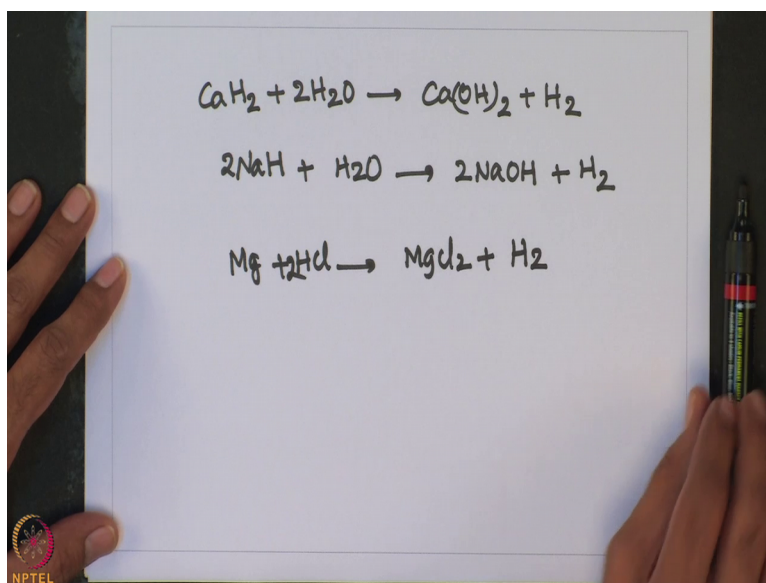 CaH₂ + 2H₂O → Ca(OH)₂ + H₂
2NaH + H2O → 2NaOH + H₂
Mg + 2HCl → MgCl₂ + H₂
NPTEL